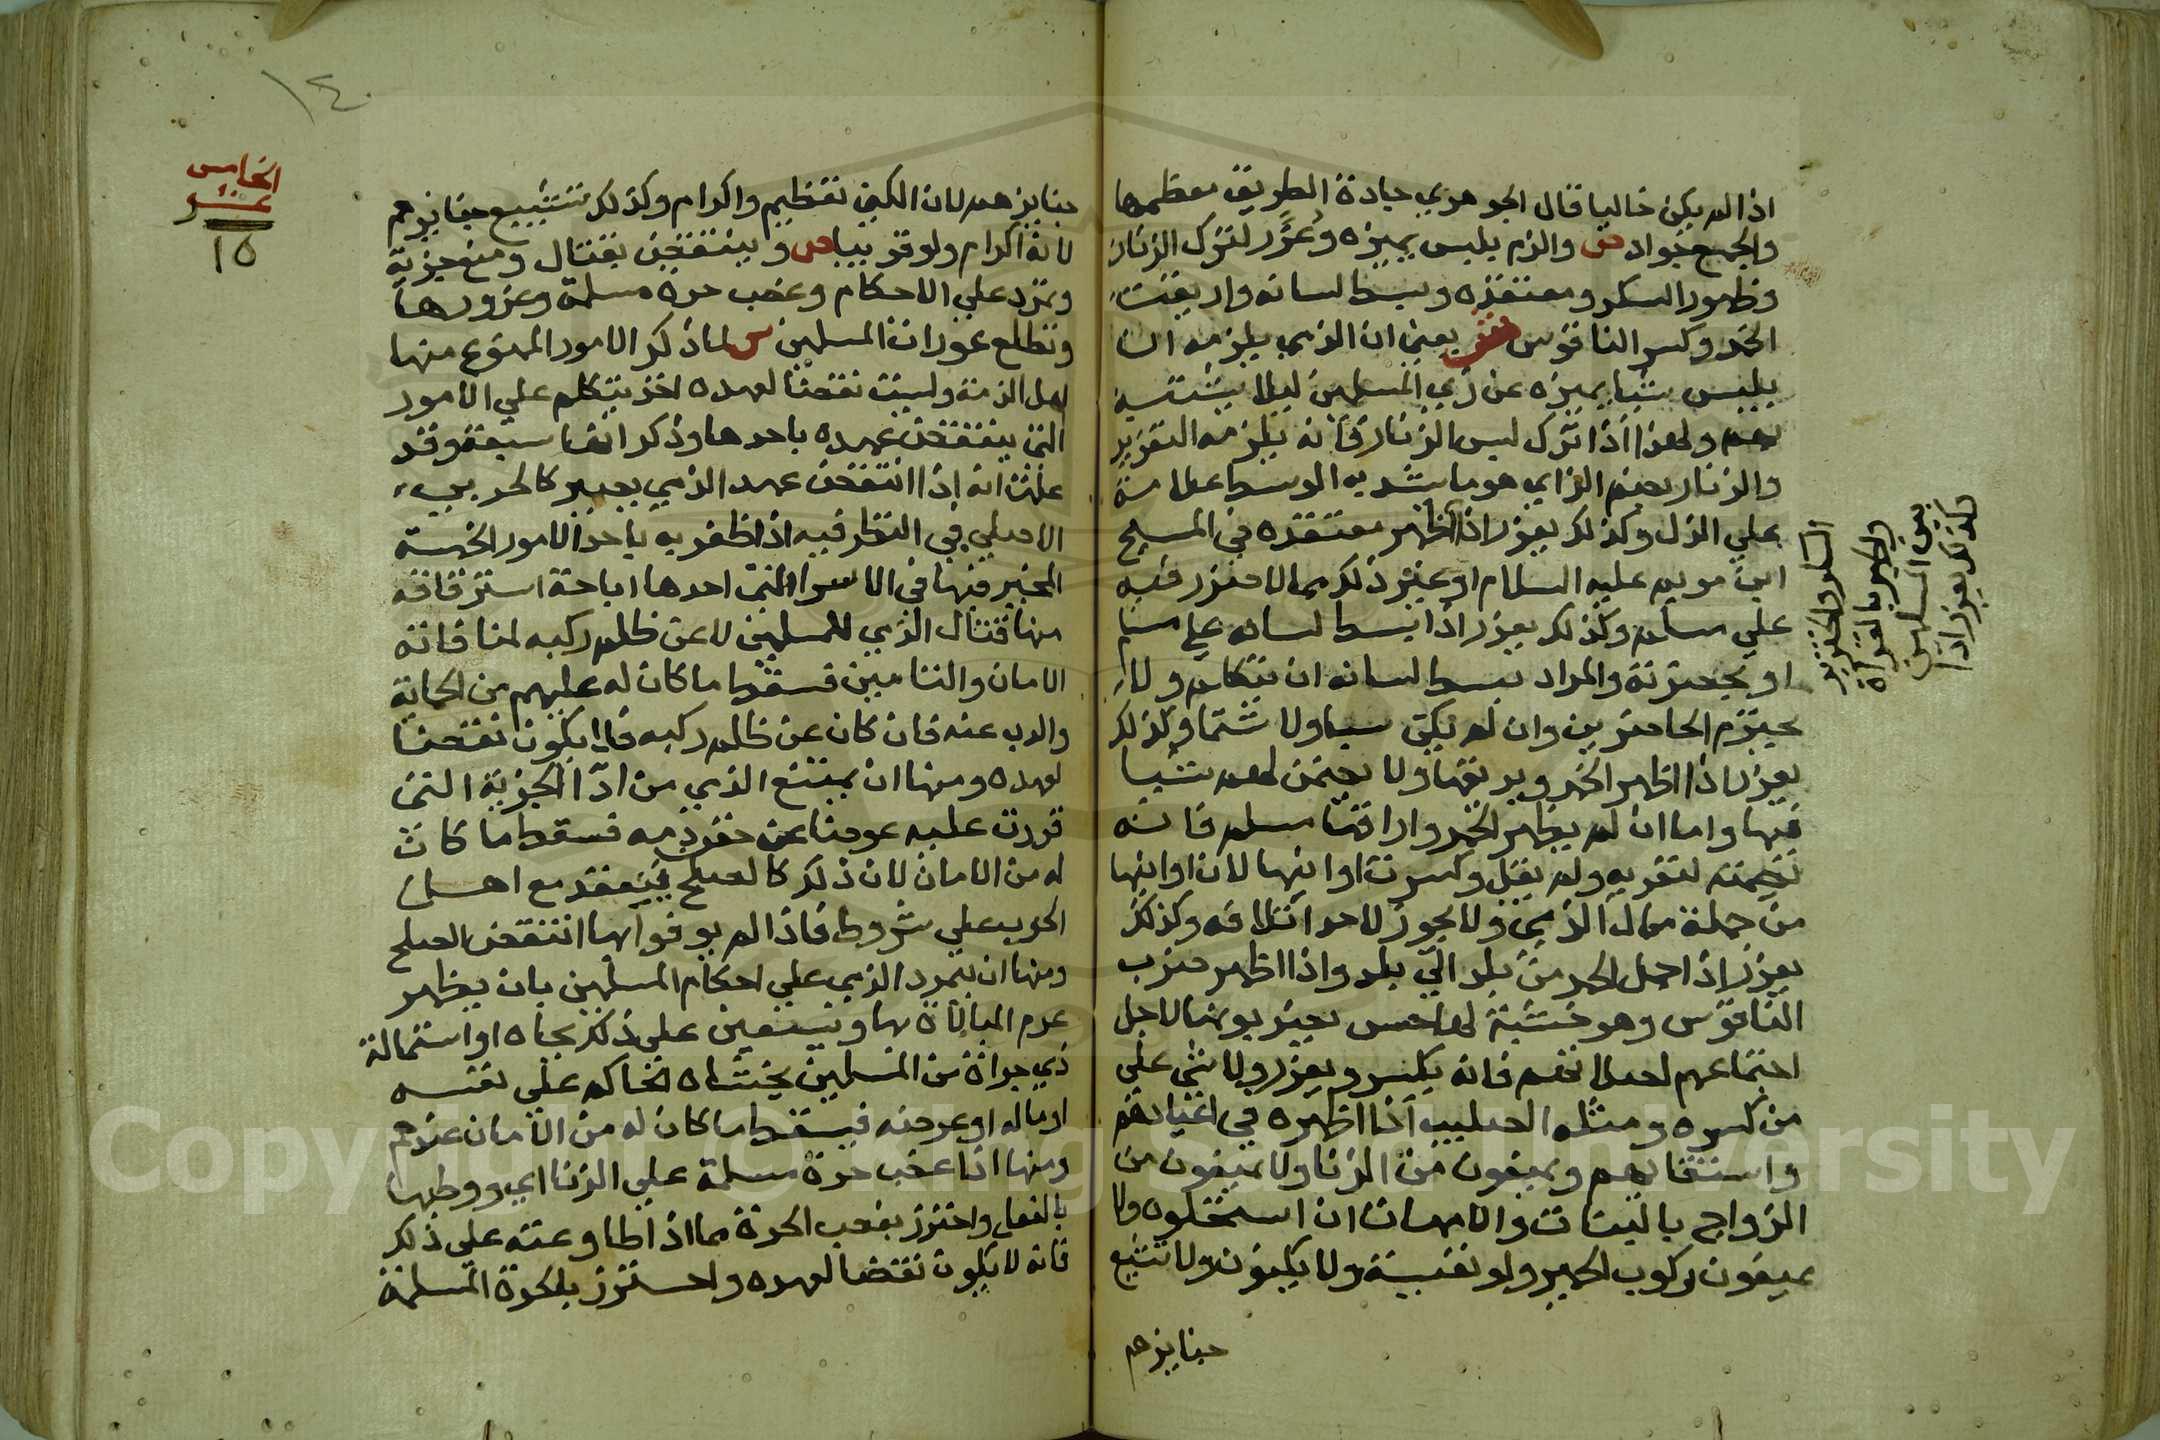 اذا لم يكن خاليا قال الجوهري جادة الطريق معظمها
والجمع جواد ص والزم بلبس يميزه وعزر لترك الزنار
وظهور السكر ومعتقده وبسط لسانه واريقت
الخمر وكسر الناقوس ش يعني ان الذمي يلزمه ان
يلبس شيا يميزه عن زي المسلمين ليلا يتشبه
بهم ولهذا اذا ترك لبس الزنار فانه يلزمه التعزير
والزنار بضم الزاي هو ما يشد به الوسط علامة
علي الذل وكذلك يعزر اذا اظهر معتقده في المسيح
ابن مريم عليه السلام او غير ذلك مما لا ضرر فيه
علي مسلم وكذلك يعزر اذا بسط لسانه علي مسلم
او بحضرته والمراد ببسط لسانه ان يتكلم ولا
يحترم الحاضرين وان لم يكن سبا ولا شتما وكذلك
يعزر اذا اظهر الخمر ويريقها ولا يضمن لهم شيا
فيها واما ان لم يظهر الخمر واراقها مسلم فانه
يضمنه لتعديه ولم يقل وكسرت اوانيها لان اوانيها
من جملة مال الذمي ولا يجوز لاحد اتلافه وكذلك
يعزر اذا حمل الخمر من بلد الي بلد واذا اظهر ضرب
الناقوس وهو خشبة لها حس يضربونها لاجل
اجتماعهم لصلاتهم فانه يكسر ويعزر ولا شي علي
من كسره ومثله الصليب اذا اظهره في اعيادهم
واستسقايهم ويمنعون من الزنا ولا يمنعون من
الزواج بالبنات والامهات ان استحلوه ولا
يمنعون ركوب الحمير ولو نفيسة ولا يكنون ولا تشيع
جنايزهم
السكر والخنزير
والجهر بالقراة
بين المسلمين
كذلك يعزر اذا
١٤
الخامس
عشر
١٥
جنايزهم لان الكني تعظيم واكرام وكذلك تشييع جنايزهم
لانه اكرام ولو قريبا ص وينتقض بقتال ومنع جزية
وتمرد علي الاحكام وغصب حرة مسلمة وغرورها
وتطلع عورات المسلمين ش لما ذكر الامور الممنوع منها
اهل الذمة وليست نقضا لعهده اخذ يتكلم علي الامور
التي ينتقض عهده باحدها وذكر انها سبعة وقد
علمت انه اذا انتقض عهد الذمي يصير كالحربي
الاصلي في النظر فيه اذا ظفر به باحد الامور الخمسة
المخير فيها في الاسرا التي احدها اباحة استرقاقه
منها قتال الذمي للمسلمين لا عن ظلم ركبه لمنافاته
الامان والتامين فسقط ما كان له عليهم من الحماية
والذب عنه فان كان عن ظلم ركبه فلا يكون نقضا
لعهده ومنها ان يمتنع الذمي من ادا الجزية التي
قررت عليه عوضا عن حقن دمه فسقط ما كان
له من الامان لان ذلك كالصلح ينعقد مع اهل
الحرب علي شروط فاذا لم يوفوا بها انتقض الصلح
ومنها ان يتمرد الذمي علي احكام المسلمين بان يظهر
عدم المبالاة بها ويستعين علي ذلك بجاه او استمالة
ذي جراة من المسلمين يخشاه الحاكم علي نفسه
او ماله او عرضه فيسقط ما كان له من الامان عندهم
ومنها اذا غصب حرة مسلمة علي الزنا اي ووطيها
بالفعل واحترز بغصب الحرة مما اذا طاوعته علي ذلك
فانه لا يكون نقضا لعهده واحترز بالحرة المسلمة
Copyright © King Saud University